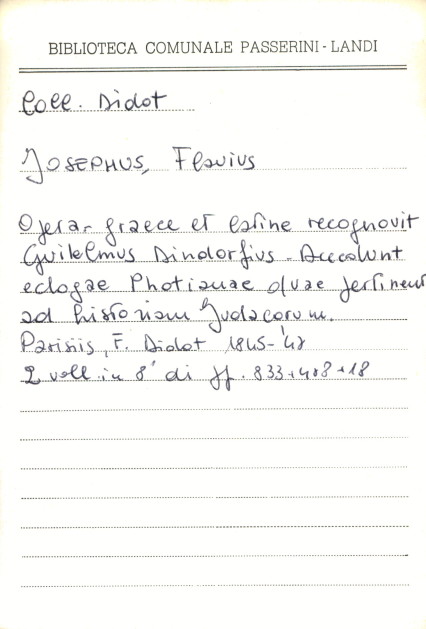 BIBLIOTECA COMUNALE PASSERINI - LANDI
Coll. Didot
JOSEPHUS, Flavius
Opera. graece et latine recognovit
Guilelmus Dindorfius. Accedunt
eclogae Photianae quae pertinent
ad historiam Judaeorum.
Parisiis, F. Didot 1845-'47
2 voll. in 8° di pp. 833+408+18